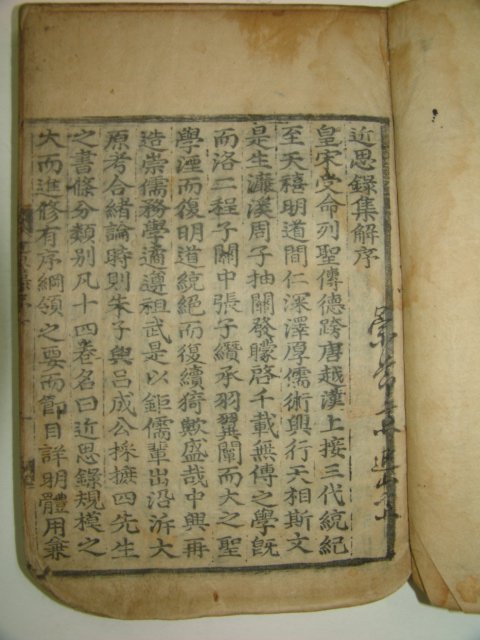 近思錄集解序
皇宋受命列聖傳德跨唐越漢上接三代統紀
至天禧明道間仁深澤厚儒術興行天相斯文
是生濂溪周子抽關發矇啓千載無傳之學旣
而洛二程子關中張子纘承羽翼闡而大之聖
學湮而復明道統絕而復續猗歟盛哉中興再
造崇儒務學遹遵祖武是以鉅儒輩出沿泝大
原考合緖論時則朱子與呂成公採摭四先生
之書條分類別凡十四卷名曰近思錄規模之
大而進修有序綱領之要而節目詳明體用兼